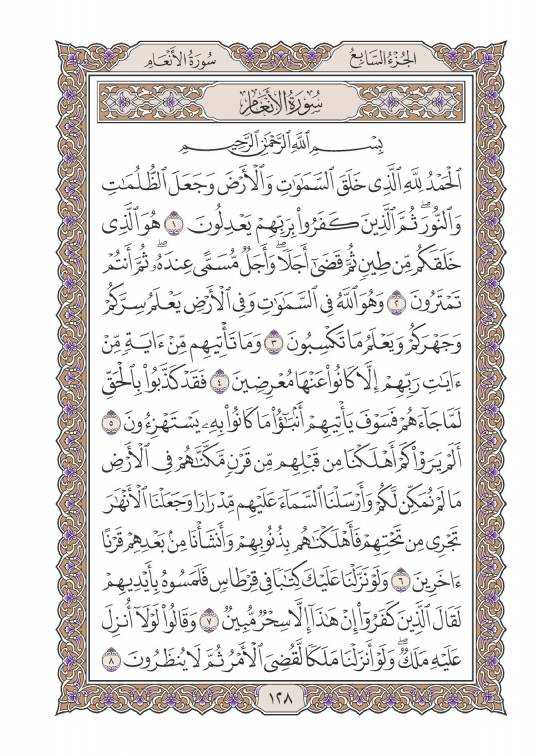 سُورَةُ الأَنْعَام
الجُزْءُ السَّابِعُ
سُورَةُ الأَنْعَامِ
بِسْمِ ٱللَّهِ ٱلرَّحْمَٰنِ ٱلرَّحِيمِ
ٱلْحَمْدُ لِلَّهِ ٱلَّذِى خَلَقَ ٱلسَّمَٰوَٰتِ وَٱلْأَرْضَ وَجَعَلَ ٱلظُّلُمَٰتِ
وَٱلنُّورَۖ ثُمَّ ٱلَّذِينَ كَفَرُوا۟ بِرَبِّهِمْ يَعْدِلُونَ ١ هُوَ ٱلَّذِى
خَلَقَكُم مِّن طِينٍ ثُمَّ قَضَىٰٓ أَجَلًاۖ وَأَجَلٌ مُّسَمًّى عِندَهُۥۖ ثُمَّ أَنتُمْ
تَمْتَرُونَ ٢ وَهُوَ ٱللَّهُ فِى ٱلسَّمَٰوَٰتِ وَفِى ٱلْأَرْضِ يَعْلَمُ سِرَّكُمْ
وَجَهْرَكُمْ وَيَعْلَمُ مَا تَكْسِبُونَ ٣ وَمَا تَأْتِيهِم مِّنْ ءَايَةٍ مِّنْ
ءَايَٰتِ رَبِّهِمْ إِلَّا كَانُوا۟ عَنْهَا مُعْرِضِينَ ٤ فَقَدْ كَذَّبُوا۟ بِٱلْحَقِّ
لَمَّا جَآءَهُمْ فَسَوْفَ يَأْتِيهِمْ أَنۢبَٰٓؤُا۟ مَا كَانُوا۟ بِهِۦ يَسْتَهْزِءُونَ ٥
أَلَمْ يَرَوْا۟ كَمْ أَهْلَكْنَا مِن قَبْلِهِم مِّن قَرْنٍ مَّكَّنَّٰهُمْ فِى ٱلْأَرْضِ
مَا لَمْ نُمَكِّن لَّكُمْ وَأَرْسَلْنَا ٱلسَّمَآءَ عَلَيْهِم مِّدْرَارًا وَجَعَلْنَا ٱلْأَنْهَٰرَ
تَجْرِى مِن تَحْتِهِمْ فَأَهْلَكْنَٰهُم بِذُنُوبِهِمْ وَأَنشَأْنَا مِنۢ بَعْدِهِمْ قَرْنًا
ءَاخَرِينَ ٦ وَلَوْ نَزَّلْنَا عَلَيْكَ كِتَٰبًا فِى قِرْطَاسٍ فَلَمَسُوهُ بِأَيْدِيهِمْ
لَقَالَ ٱلَّذِينَ كَفَرُوٓا۟ إِنْ هَٰذَآ إِلَّا سِحْرٌ مُّبِينٌ ٧ وَقَالُوا۟ لَوْلَآ أُنزِلَ
عَلَيْهِ مَلَكٌۖ وَلَوْ أَنزَلْنَا مَلَكًا لَّقُضِىَ ٱلْأَمْرُ ثُمَّ لَا يُنظَرُونَ ٨
١٢٨